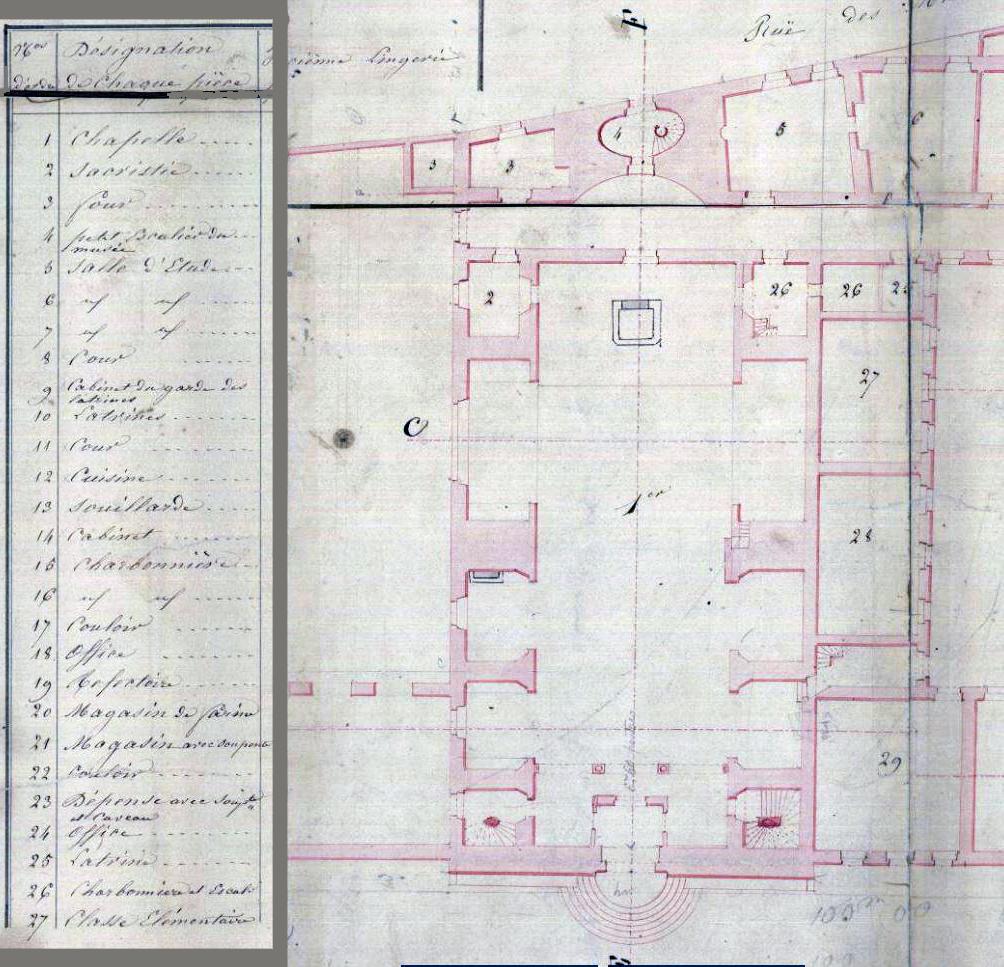 Nos Désignation
d'ordre de Chaque pièce
1 Chapelle
2 Sacristie
3 Cour
4 petit Escalier du
musée
5 Salle d'Etude
6 id id
7 id id
8 Cour
9 Cabinet du garde des
latrines
10 Latrines
11 Cour
12 Cuisine
13 Souillarde
14 Cabinet
15 Charbonnière
16 id id
17 Couloir
18 Office
19 Refectoire
20 Magasin de farine
21 Magasin avec soupente
22 Couloir
23 Dépense avec Soupte
et Caveau
24 Office
25 Latrine
26 Charbonniere et Escalr
27 Classe Elémentaire
Lingerie
Rüe des
F
3 3 4 5 6
2 26 26 25
27
C
1er
28
29
E